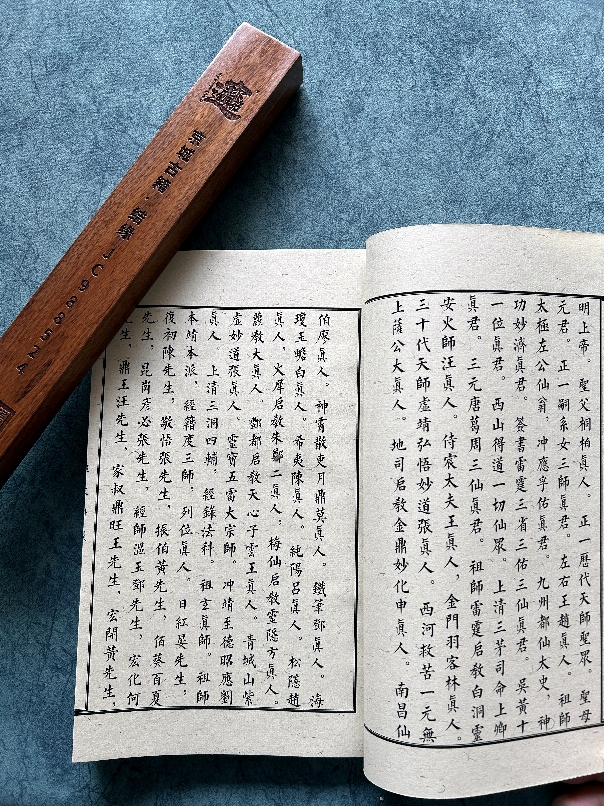 京城古籍·結緣JC988524
明上帝。聖父桐柏眞人。正一歷代天師聖眾。聖母
元君。正一嗣系女三師眞君。左右王趙眞人。祖師
太極左公仙翁，冲應孚佑眞君。九州都仙太史，神
功妙濟眞君。簽書雷霆三省三佑三仙眞君。吳黃十
一位眞君。西山得道一切仙眾。上清三茅司命上卿
眞君。三元唐葛周三仙眞君。祖師雷霆启教白洞靈
安火師汪眞人。侍宸太夫王眞人，金門羽客林眞人。
三十代天師虛靖弘悟妙道張眞人。西河救苦一元無
上薩公大眞人。地司启教金鼎妙化申眞人。南昌仙
伯廖眞人。神霄散吏月鼎莫眞人。鐵筆鄧眞人。海
瓊玉蟾白眞人。希夷陳眞人。純陽呂眞人。松隱趙
眞人，火犀启教朱鄭二眞人，梅仙启教靈隱方眞人。
啟教大眞人。酆都启教天心子雷王眞人。青城山紫
虛妙道張眞人 靈寶五雷大宗師。冲靖至德昭應劉
眞人 上清三洞四輔，經籙法科。祖玄眞師。祖師
本靖本派，經籍度三師，列位眞人。日紅晏先生，
復初陳先生，敬悟張先生，振伯黃先生，佰葵百夏
先生，昆崗彥必張先生，經師溫玉鄧先生，宏化何
先生，鼎王汪先生，家叔鼎旺王先生，宏開黃先生，